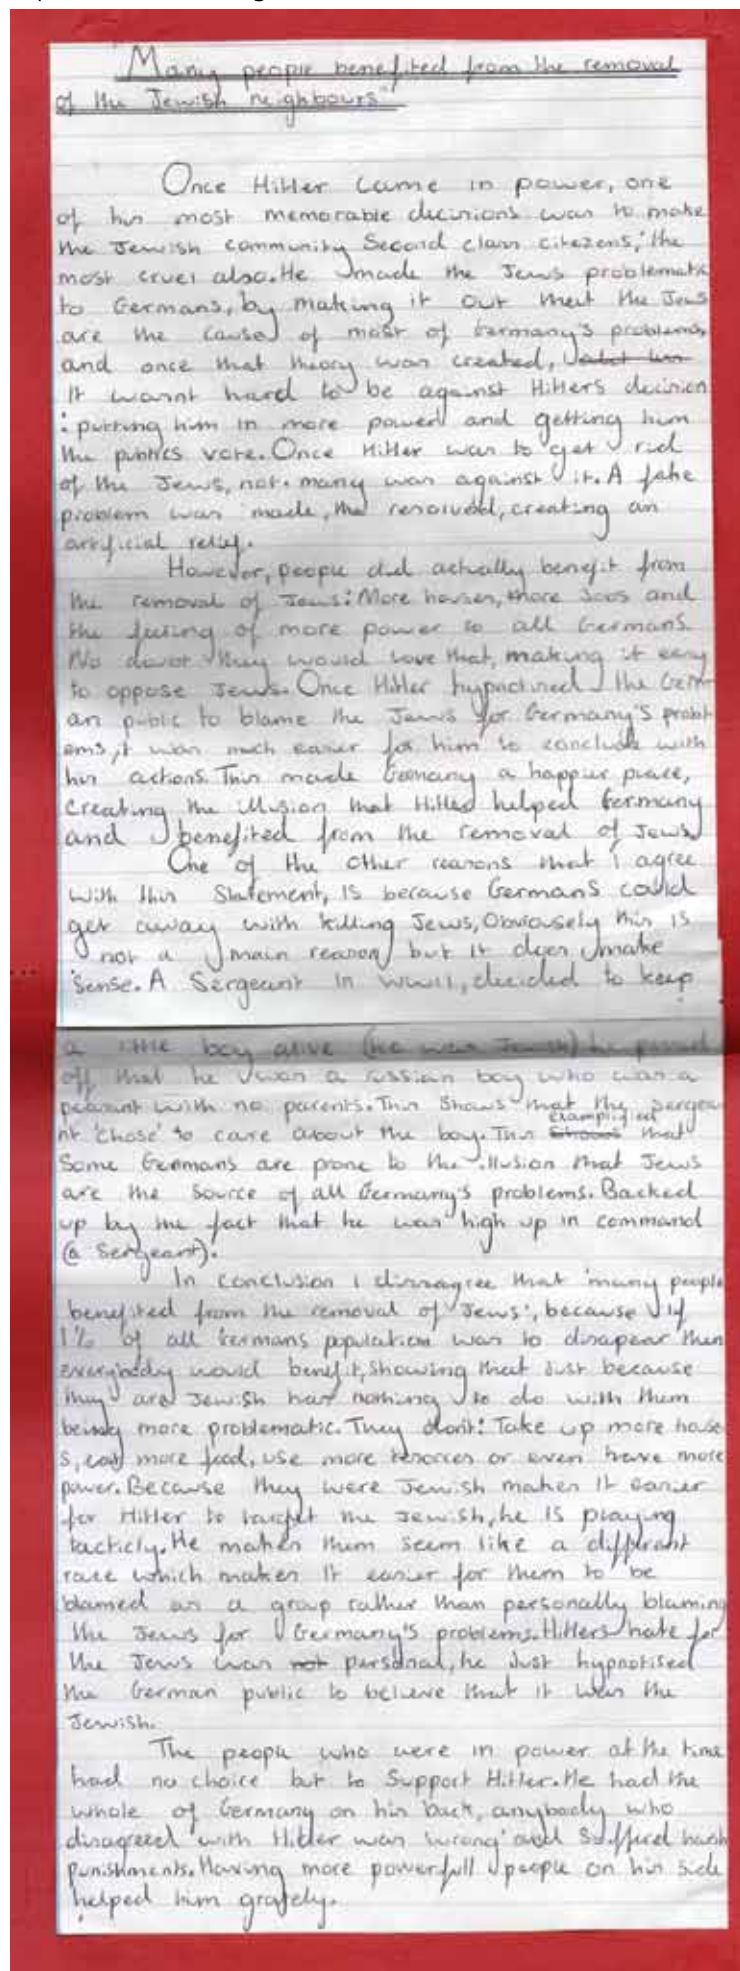 "Many people benefited from the removal
of the Jewish neighbours"
Once Hitler came in power, one
of his most memorable decisions was to make
the Jewish community Second class citezens, the
most cruel also. He made the Jews problematic
to Germans, by making it out that the Jews
are the cause of most of Germany's problems,
and once that theory was created,
It wasnt hard to be against Hitlers decision
: putting him in more power and getting him
the publics vote. Once Hitler was to get rid
of the Jews, not many was against it. A fake
problem was made, the resolved, creating an
artificial relief.
However, people did actually benefit from
the removal of Jews: More houses, more Jobs and
the feeling of more power to all Germans.
No doubt they would love that, making it easy
to oppose Jews. Once Hitler hypnotised the Germ-
an public to blame the Jews for Germany's probl
ems, it was much easier for him to conclude with
his actions. This made Germany a happier place,
Creating the illusion that Hitler helped Germany
and benefited from the removal of Jews.
One of the other reasons that i agree
with this Statement, is because Germans could
get away with killing Jews, Obviousely this is
not a main reason but it does make
sense. A Sergeant in WWII, decided to keep
a little boy alive (he was Jewish) he passed
off that he was a russian boy who was a
peasant with no parents. This Shows that the sergea
nt 'chose' to care about the boy. This examplified that
Some Germans are prone to the illusion that Jews
are the source of all Germany's problems. Backed
up by the fact that he was high up in command
(a Sergeant).
In conclusion i dissagree that 'many people
benefited from the removal of Jews', because if
1% of all Germans population was to disapear then
everybody would benefit, showing that Just because
they are Jewish has nothing to do with them
being more problematic. They don't: Take up more house
s, eat more food, use more resorces or even have more
power. Because they were Jewish makes it easier
for Hitler to target the Jewish, he is playing
tacticly. He makes them seem like a differant
race which makes it easier for them to be
blamed as a group rather than personally blaming
the Jews for Germany's problems. Hitlers hate for
the Jews was personal, he Just hypnotised
the German public to believe that it was the
Jewish.
The people who were in power at the time
had no choice but to Support Hitler. He had the
whole of Germany on his back, anybody who
disagreed with Hitler was 'wrong' and Suffered harsh
punishments. Having more powerfull people on his side
helped him grately.